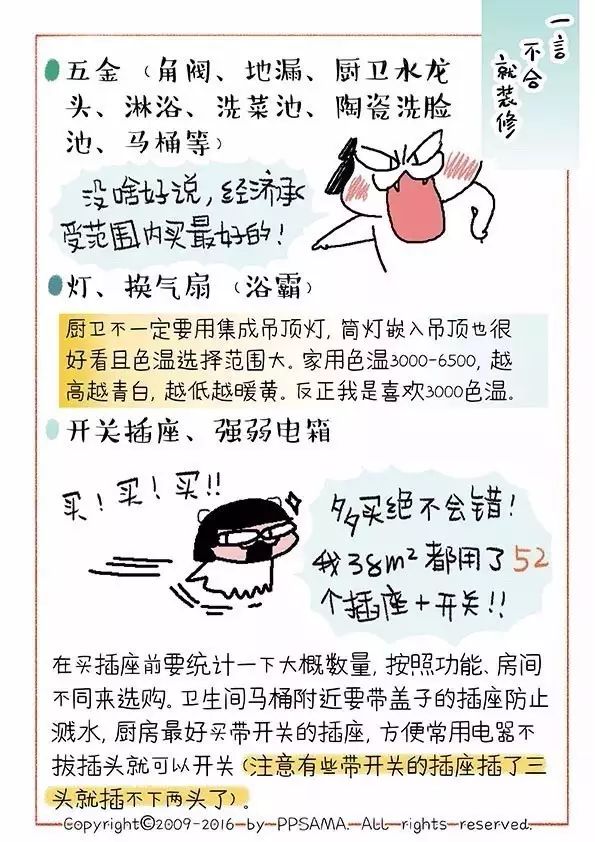 一言
不合
就装修
五金（角阀、地漏、厨卫水龙
头、淋浴、洗菜池、陶瓷洗脸
池、马桶等）
没啥好说，经济承
受范围内买最好的！
灯、换气扇（浴霸）
厨卫不一定要用集成吊顶灯，筒灯嵌入吊顶也很
好看且色温选择范围大。家用色温3000-6500，越
高越青白，越低越暖黄。反正我是喜欢3000色温。
开关插座、强弱电箱
买！买！买!!
多多买绝不会错！
我38m²都用了52
个插座+开关!!
在买插座前要统计一下大概数量，按照功能、房间
不同来选购。卫生间马桶附近要带盖子的插座防止
溅水，厨房最好买带开关的插座，方便常用电器不
拔插头就可以开关（注意有些带开关的插座插了三
头就插不下两头了）。
Copyright©2009-2016 by PPSAMA. All rights reserved.